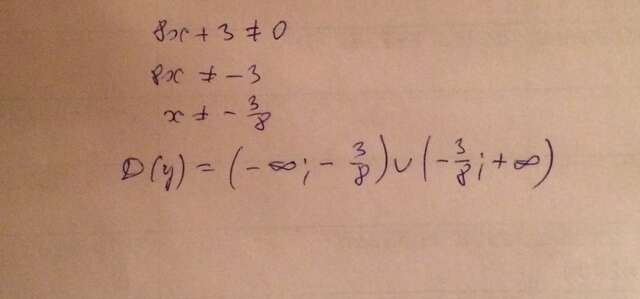 8x + 3 ≠ 0
8x ≠ -3
x ≠ - 3/8
D(y) = (-∞; - 3/8) ∪ (- 3/8; +∞)